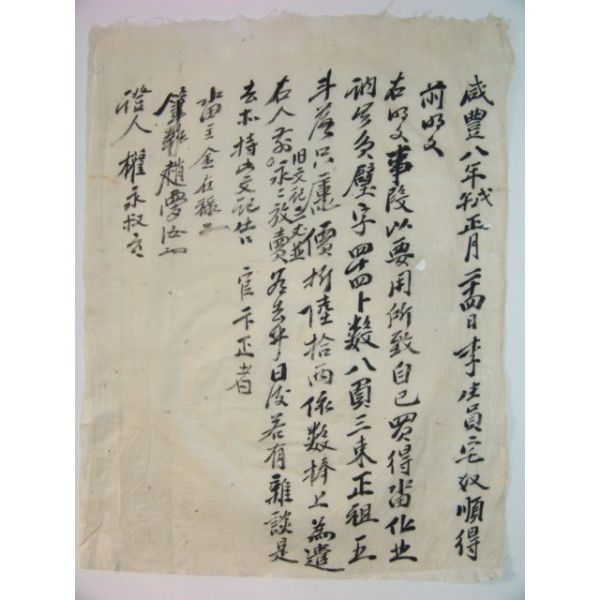 咸豐八年戊正月二十四日李生員宅奴順得
前明文
右明文事段以要用所致自已買得畓化
員負壁字四十四卜數八負三束正租五
斗落只廛價折陸拾兩依數捧上為遣
右人前永永放賣為去乎日後若有雜談是
舊文記並
去木持此文記告官下正者
畓主金在
筆執趙
證人權永叔